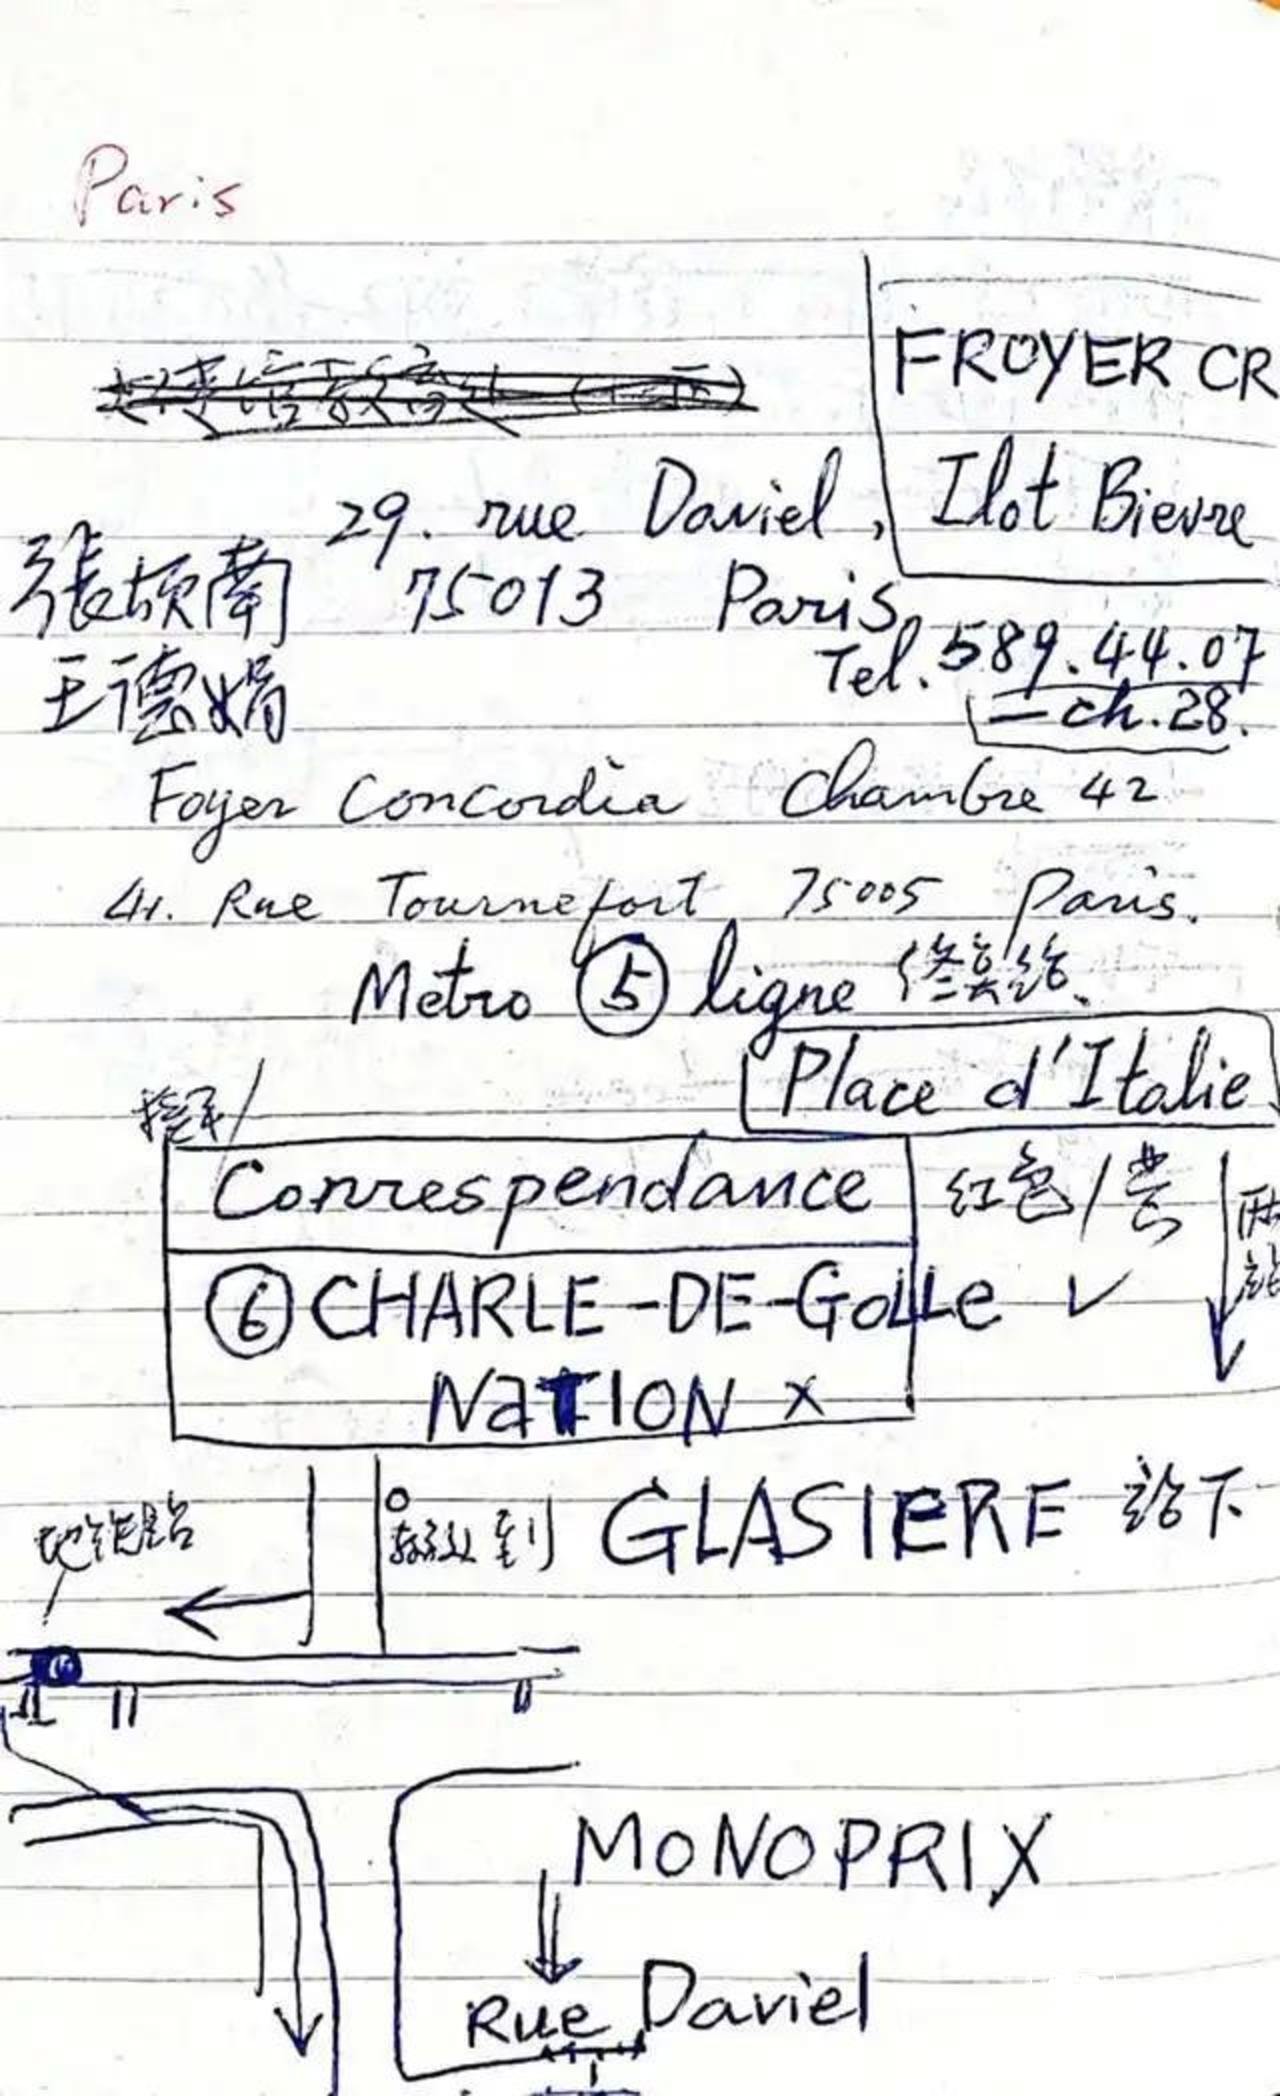 Paris
FROYER CR
29. rue Daviel,
Ilot Bievre
張颂南
75013 Paris
Tel. 589.44.07
王德娟
—ch.28.
Foyer Concordia Chambre 42
41. Rue Tournefort 75005 Paris.
Metro ⑤ ligne 终点站
Place d'Italie
Correspendance
红色/黄
两站
⑥ CHARLE-DE-GOLLe ✓
NaTION ×
地铁站
到 GLASIERE 站下
MONOPRIX
Rue Daviel